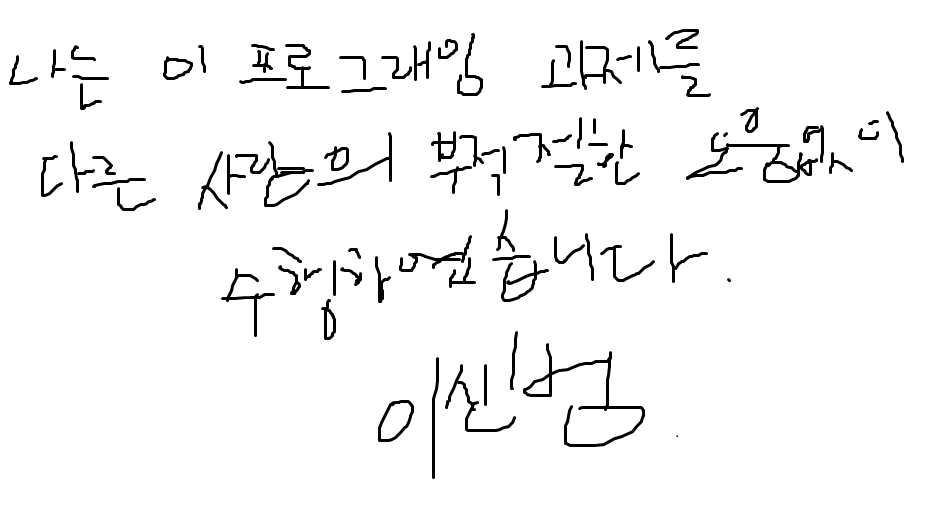 나는 이 프로그래밍 과제를
다른 사람의 부적절한 도움없이
수행하였습니다.